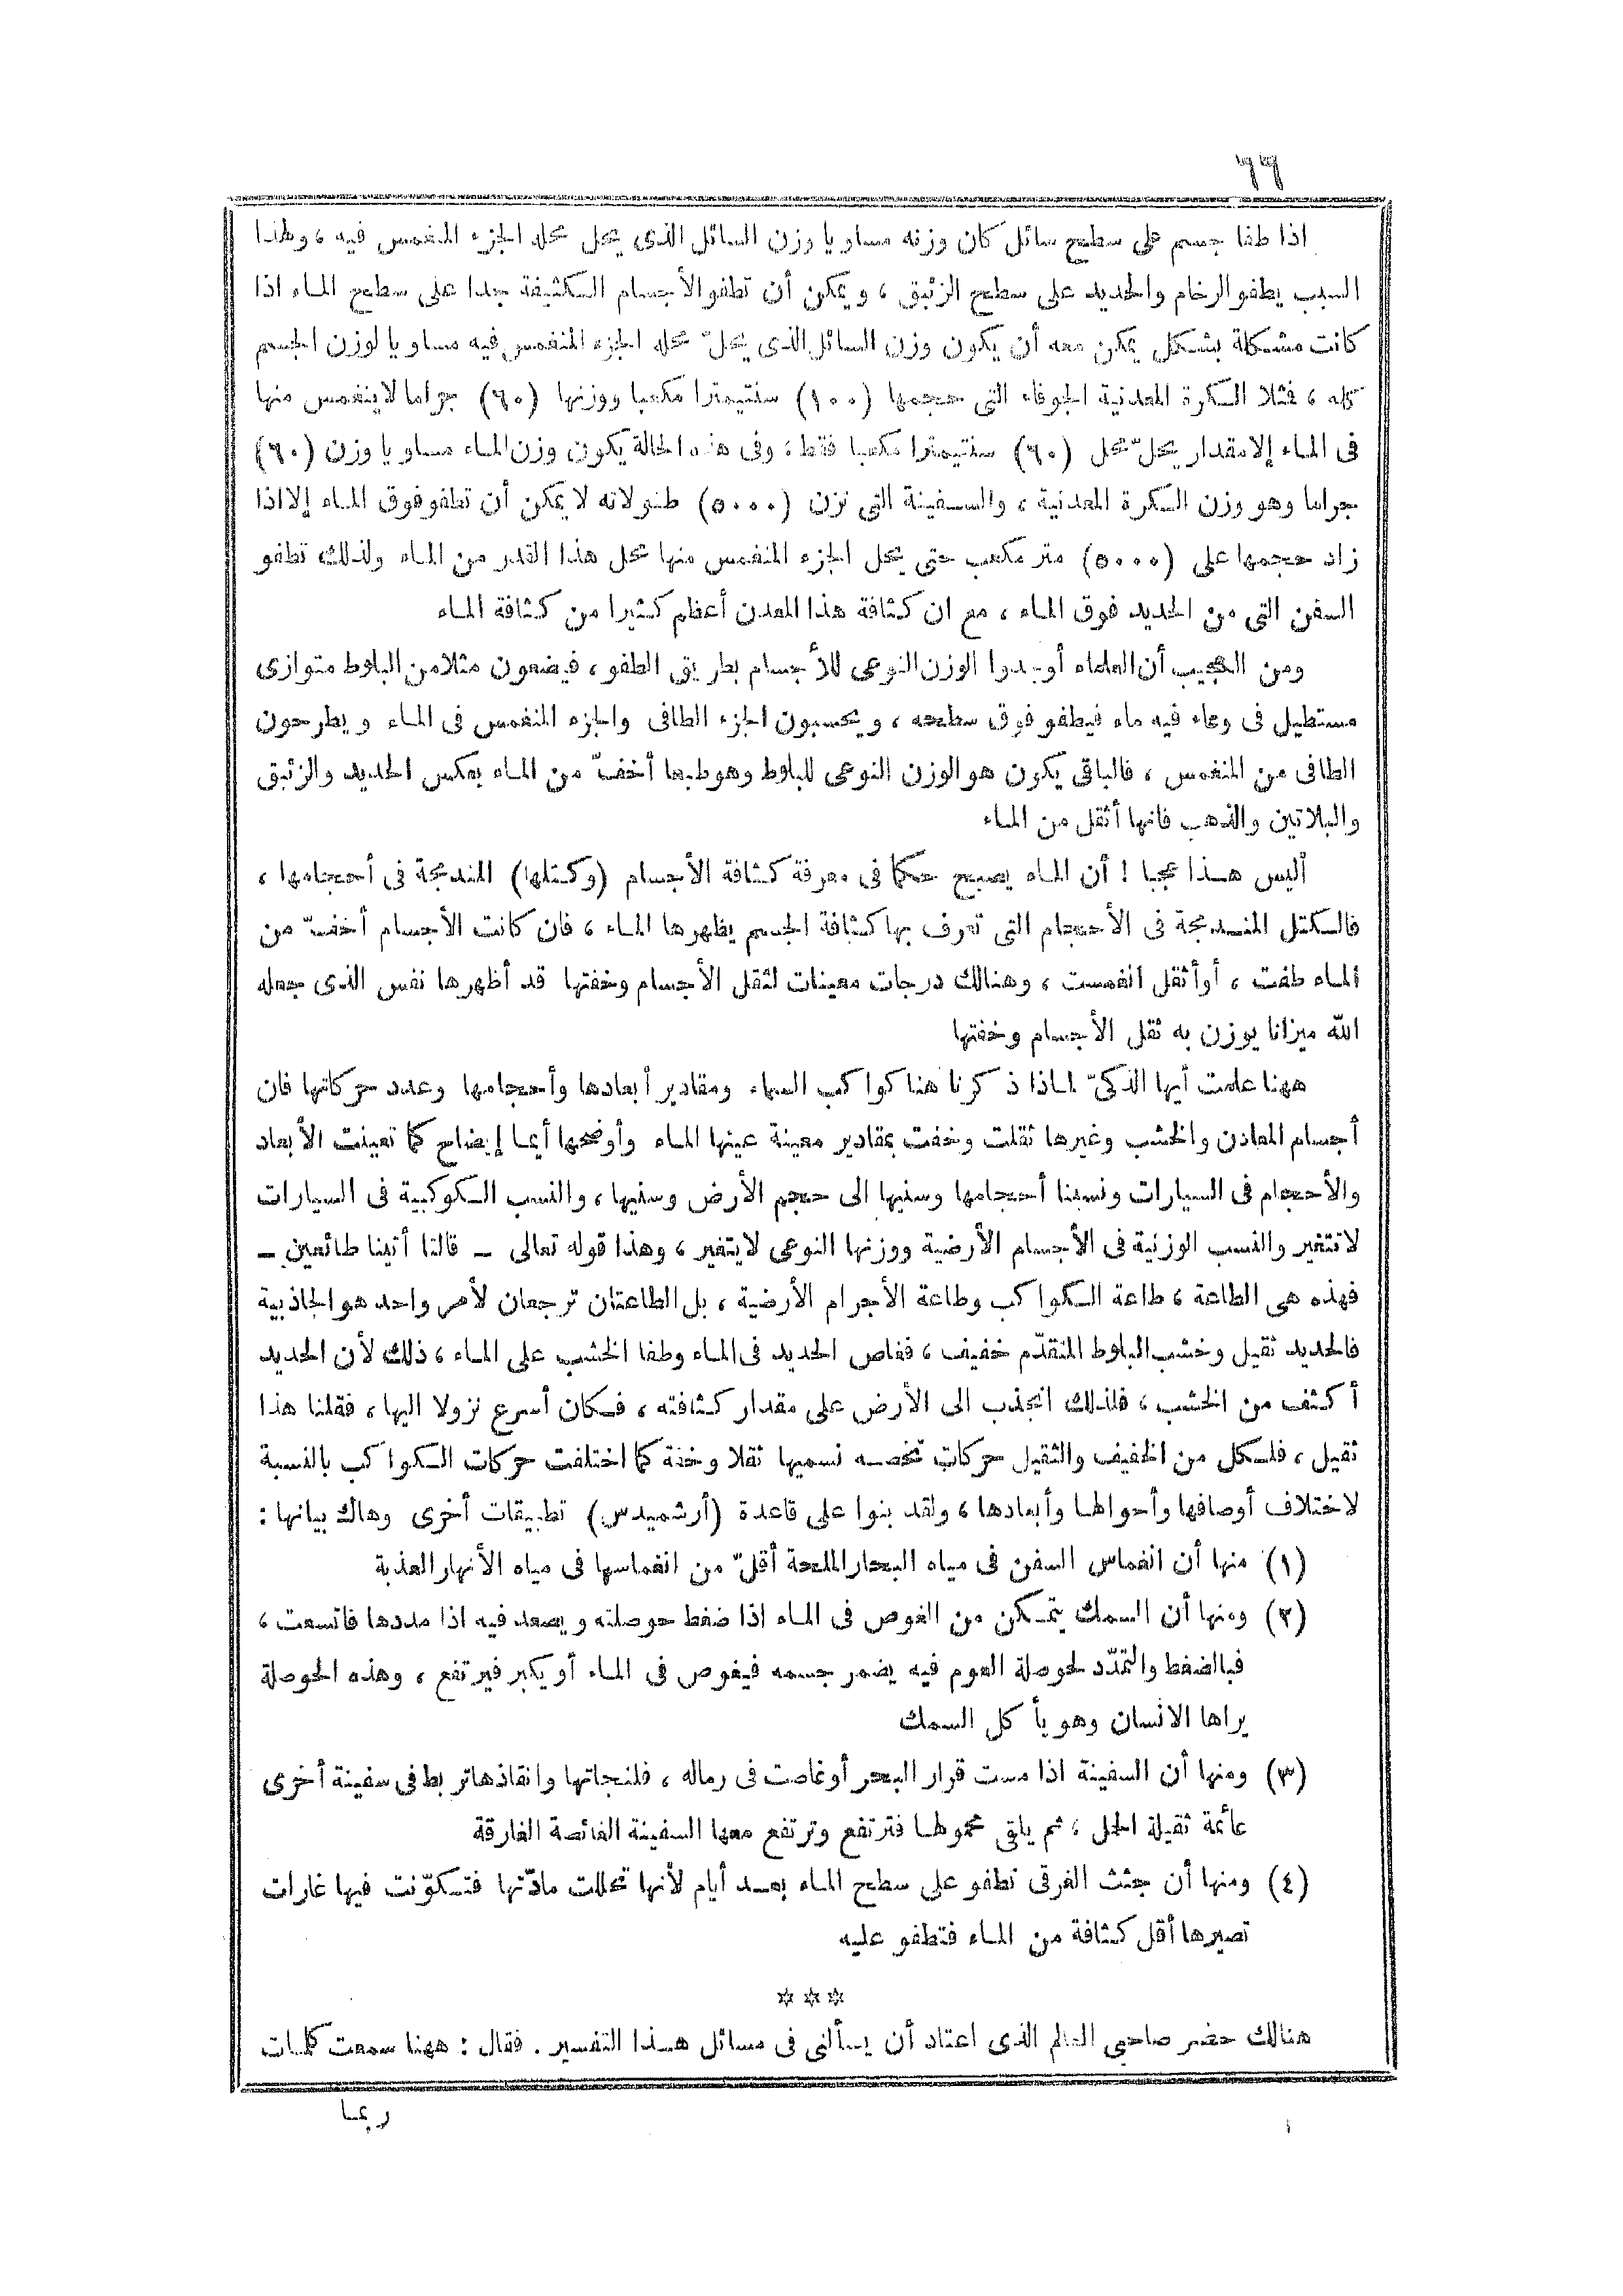 ٦٦
اذا طفا جسم على سطح سائل كان وزنه مساويا وزن السائل الذى يحل محله الجزء المنغمس فيه ، ولهذا
السبب يطفو الرخام والحديد على سطح الزئبق ، ويمكن أن تطفو الأجسام الكثيفة جدا على سطح الماء اذا
كانت مشكلة بشكل يمكن معه أن يكون وزن السائل الذى يحلّ محله الجزء المنغمس فيه مساويا لوزن الجسم
كله ، فمثلا الكرة المعدنية الجوفاء التى حجمها (١٠٠) سنتيمترا مكعبا ووزنها (٦٠) جراما لا ينغمس منها
فى الماء إلا مقدار يحلّ محل (٦٠) سنتيمترا مكعبا فقط ، وفى هذه الحالة يكون وزن الماء مساويا وزن (٦٠)
جراما وهو وزن الكرة المعدنية ، والسفينة التى تزن (٥٠٠٠) طنولاته لا يمكن أن تطفو فوق الماء إلا اذا
زاد حجمها على (٥٠٠٠) متر مكعب حتى يحل الجزء المنغمس منها محل هذا القدر من الماء ولذلك تطفو
السفن التى من الحديد فوق الماء ، مع ان كثافة هذا المعدن أعظم كثيرا من كثافة الماء
ومن العجيب أن العلماء أوجدوا الوزن النوعى للأجسام بطريق الطفو ، فيضعون مثلا من البلوط متوازى
مستطيل فى وعاء فيه ماء فيطفو فوق سطحه ، ويحسبون الجزء الطافى والجزء المنغمس فى الماء ويطرحون
الطافى من المنغمس ، فالباقى يكون هو الوزن النوعى للبلوط وهو طبعا أخفّ من الماء بعكس الحديد والزئبق
والبلاتين والذهب فانها أثقل من الماء
أليس هذا عجبا ! أن الماء يصبح حكما فى معرفة كثافة الأجسام (وكتلها) المندمجة فى أحجامها ،
فالكتل المندمجة فى الأحجام التى تعرف بها كثافة الجسم يظهرها الماء ، فان كانت الأجسام أخفّ من
الماء طفت ، أو أثقل انغمست ، وهنالك درجات معينات لثقل الأجسام وخفتها قد أظهرها نفس الذى جعله
الله ميزانا يوزن به ثقل الأجسام وخفتها
ههنا علمت أيها الذكىّ لماذا ذكرنا هنا كواكب السماء ومقادير أبعادها وأحجامها وعدد حركاتها فان
أجسام المعادن والخشب وغيرها ثقلت وخفت بمقادير معينة عينها الماء وأوضحها أيما إيضاح كما تعينت الأبعاد
والأحجام فى السيارات ونسبنا أحجامها وسنيها الى حجم الأرض وسنيها ، والنسب الكوكبية فى السيارات
لا تتغير والنسب الوزنية فى الأجسام الأرضية ووزنها النوعى لا يتغير ، وهذا قوله تعالى - قالتا أتينا طائعين -
فهذه هى الطاعة ، طاعة الكواكب وطاعة الأجرام الأرضية ، بل الطاعتان ترجعان لأمر واحد هو الجاذبية
فالحديد ثقيل وخشب البلوط المتقدّم خفيف ، فغاص الحديد فى الماء وطفا الخشب على الماء ، ذلك لأن الحديد
أكثف من الخشب ، فلذلك انجذب الى الأرض على مقدار كثافته ، فكان أسرع نزولا اليها ، فقلنا هذا
ثقيل ، فلكل من الخفيف والثقيل حركات تخصه نسميها ثقلا وخفة كما اختلفت حركات الكواكب بالنسبة
لاختلاف أوصافها وأحوالها وأبعادها ، ولقد بنوا على قاعدة (أرشميدس) تطبيقات أخرى وهاك بيانها :
(١) منها أن انغماس السفن فى مياه البحار الملحة أقلّ من انغماسها فى مياه الأنهار العذبة
(٢) ومنها أن السمك يتمكن من الغوص فى الماء اذا ضغط حوصلته ويصعد فيه اذا مددها فاتسعت ،
فبالضغط والتمدّد لحوصلة العوم فيه يضمر جسمه فيغوص فى الماء أو يكبر فيرتفع ، وهذه الحوصلة
يراها الانسان وهو يأكل السمك
(٣) ومنها أن السفينة اذا مست قرار البحر أو غاصت فى رماله ، فلنجاتها وانقاذها تربط فى سفينة أخرى
عائمة ثقيلة الحمل ، ثم يلقى محمولها فترتفع وترتفع معها السفينة الغائصة الغارقة
(٤) ومنها أن جثث الغرقى تطفو على سطح الماء بعد أيام لأنها تحللت مادّتها فتكوّنت فيها غازات
تصيرها أقل كثافة من الماء فتطفو عليه
✡ ✡ ✡
هنالك حضر صاحبى العالم الذى اعتاد أن يسألنى فى مسائل هذا التفسير . فقال : ههنا سمعت كلمات
ربما